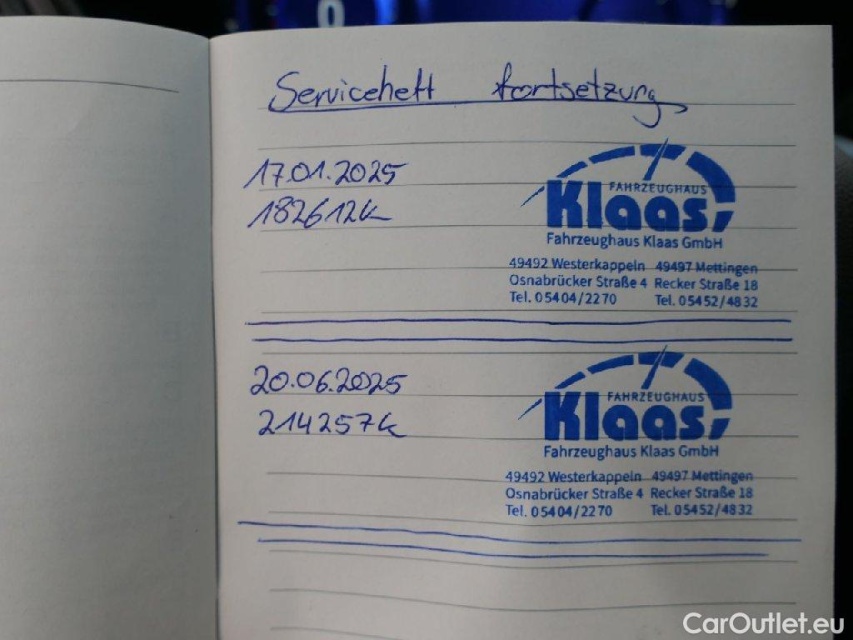 Serviceheft fortsetzung
17.01.2025
182612k
FAHRZEUGHAUS
Klaas
Fahrzeughaus Klaas GmbH
49492 Westerkappeln 49497 Mettingen
Osnabrücker Straße 4 Recker Straße 18
Tel. 05404/2270 Tel. 05452/4832
20.06.2025
214257k
FAHRZEUGHAUS
Klaas
Fahrzeughaus Klaas GmbH
49492 Westerkappeln 49497 Mettingen
Osnabrücker Straße 4 Recker Straße 18
Tel. 05404/2270 Tel. 05452/4832
CarOutlet.eu